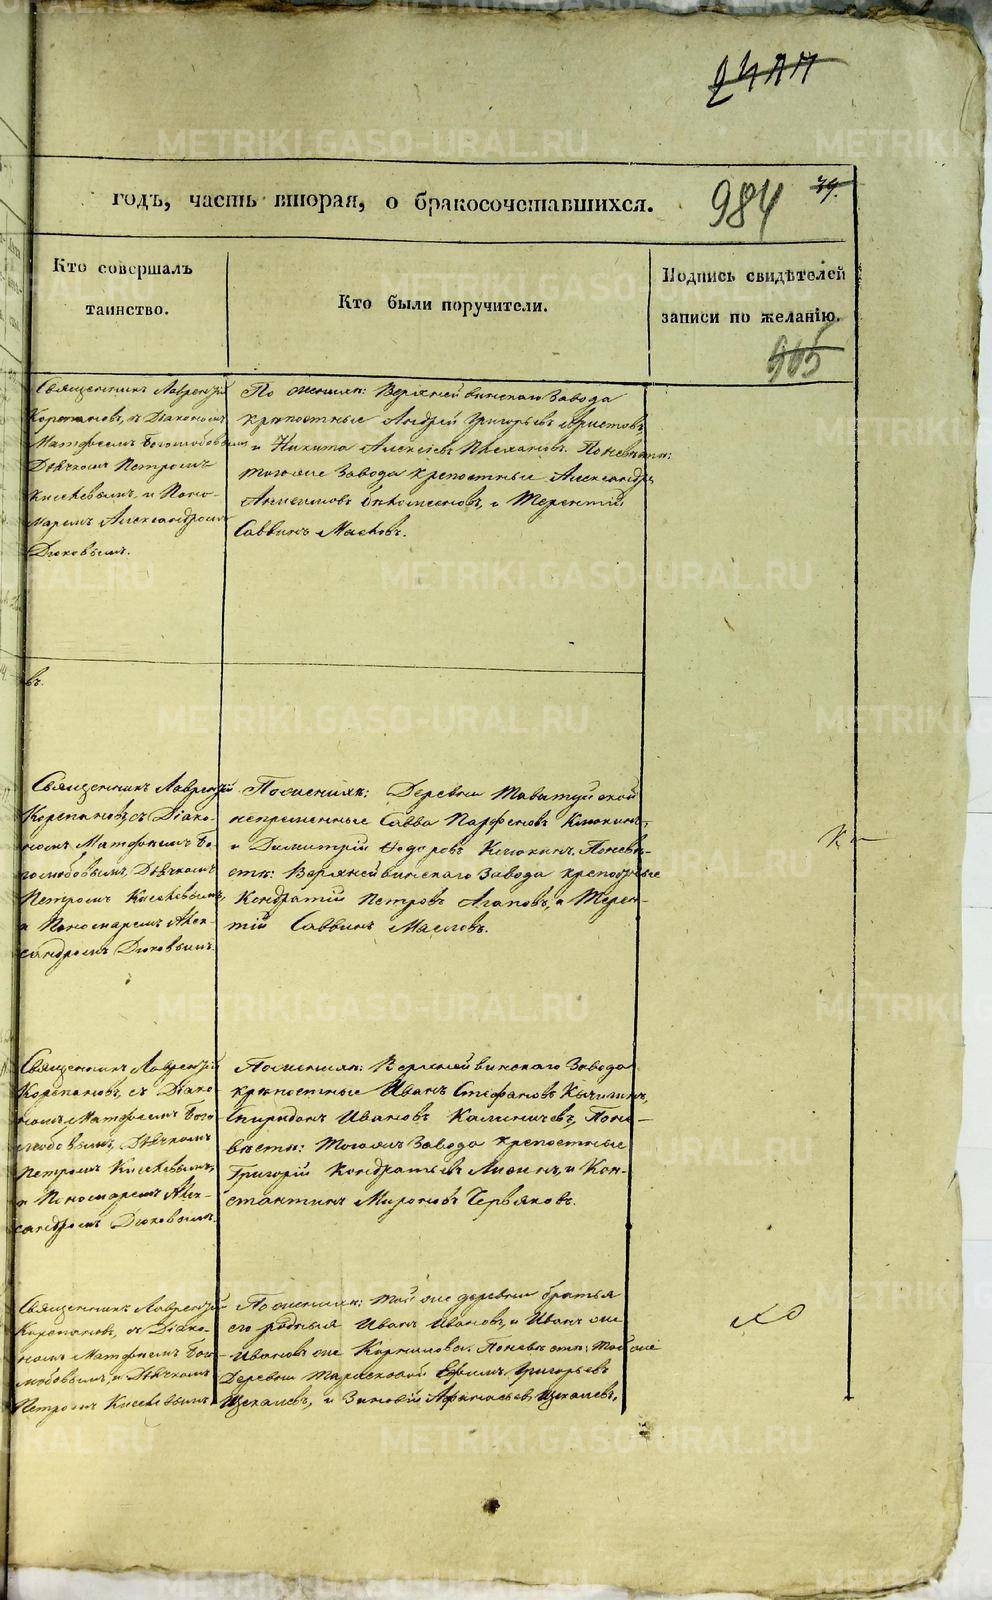 984
39.
годъ, часть вторая, о бракосочетавшихся.
Кто совершалъ
таинство.
Кто были поручители.
Подпись свидѣтелей
записи по желанію.
965
Священникъ Лаврентій
Корепановъ, съ Діакономъ
Матфеемъ Боголюбовымъ
Дьячкомъ Петромъ
Киселевымъ, и Поно-
маремъ Александромъ
Дюковымъ.
По женихѣ: Верхнейвинскаго Завода
крѣпостные Андрей Григорьевъ Аристовъ,
и Никита Алексѣевъ Плехановъ. По невѣстѣ:
тогоже Завода крепостные Александръ
Анисимовъ и Терентій
Саввинъ Масловъ.
въ.
Священникъ Лаврентій
Корепановъ, съ Діако-
номъ Матфеемъ Бо-
голюбовымъ, Дьячкомъ
Петромъ Киселевымъ,
и Пономаремъ Алек-
сандромъ Дюковымъ.
По женихѣ: Деревни Таватуйской
непременные Савва Парфеновъ
и Димитрій Федоровъ По невѣ-
стѣ: Верхнейвинскаго Завода крепостные
Кондратій Петровъ Агаповъ, и Терен-
тій Саввинъ Масловъ.
Священникъ Лаврентій
Корепановъ, съ Діако-
номъ Матфеемъ Бого-
любовымъ, Дьячкомъ
Петромъ Киселевымъ,
и Пономаремъ Алек-
сандромъ Дюковымъ.
По женихѣ: Верхнейвинскаго Завода
крѣпостные Иванъ Стефановъ
Спиридонъ Ивановъ По не-
вѣстѣ: тогожъ Завода крепостные
Григорій Кондратьевъ и Кон-
стантинъ Мироновъ Червяковъ.
Священникъ Лаврентій
Корепановъ, съ Діако-
номъ Матфеемъ Бого-
любовымъ, и Дьячкомъ
Петромъ Киселевымъ
По женихѣ: той же деревни братья
его родныя Иванъ Ивановъ, и Иванъ же
Ивановъ же Корниловы. По невѣстѣ: той же
Деревни Ефимъ Григорьевъ
и Зиновій Афанасьевъ